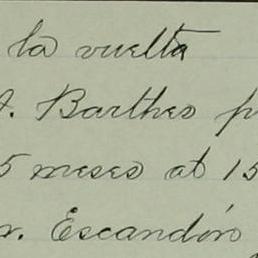 la vuelta
A. Barthes p
5 meses at 15
r. Escandón